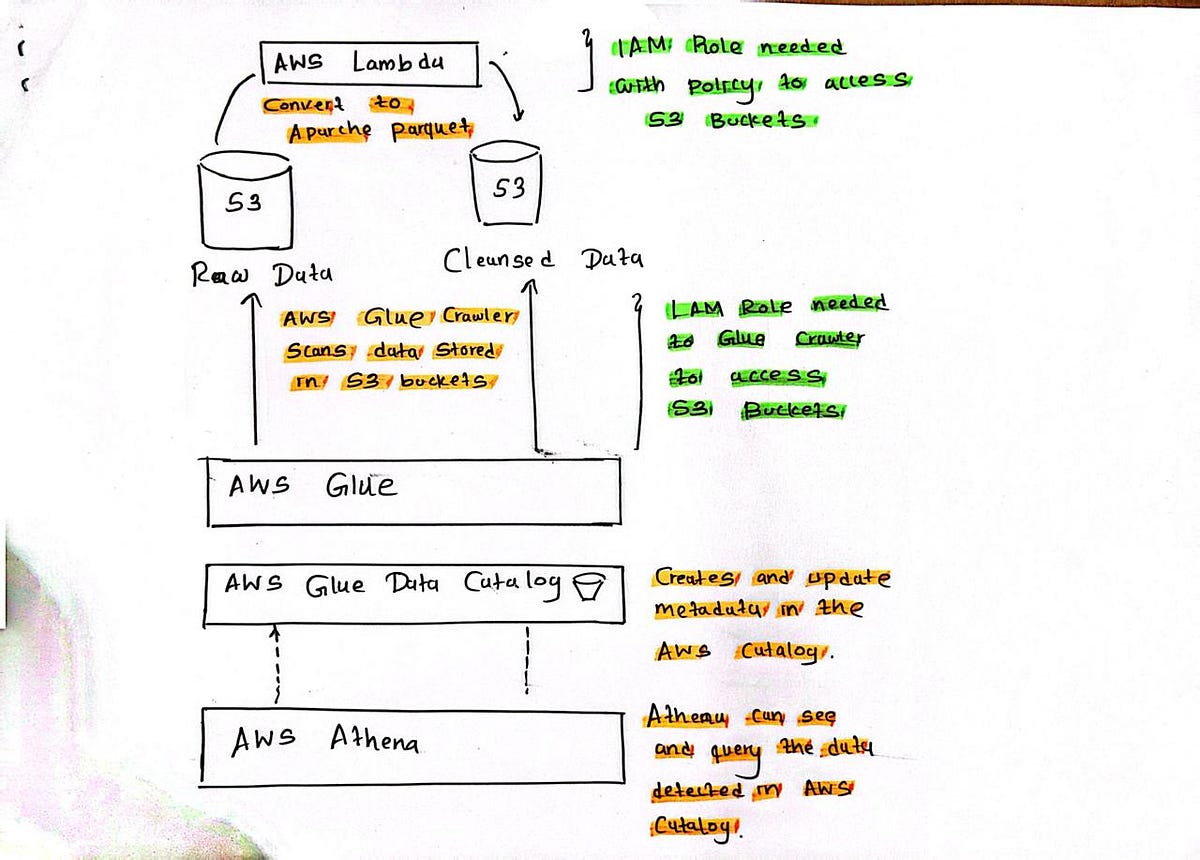 AWS Lambda
Convert to
Apurche parquet
IAM Role needed
with policy to access
S3 Buckets.
S3
S3
Raw Data
Cleunsed Data
AWS Glue Crawler
Scans data Stored
in S3 buckets
IAM Role needed
to Glue Crawler
to access
S3 Buckets
AWS Glue
AWS Glue Data Cutalog
Creates and update
metaduta in the
AWS Cutalog.
AWS Athena
Athenu can see
and query the duta
detected in AWS
Cutalog.